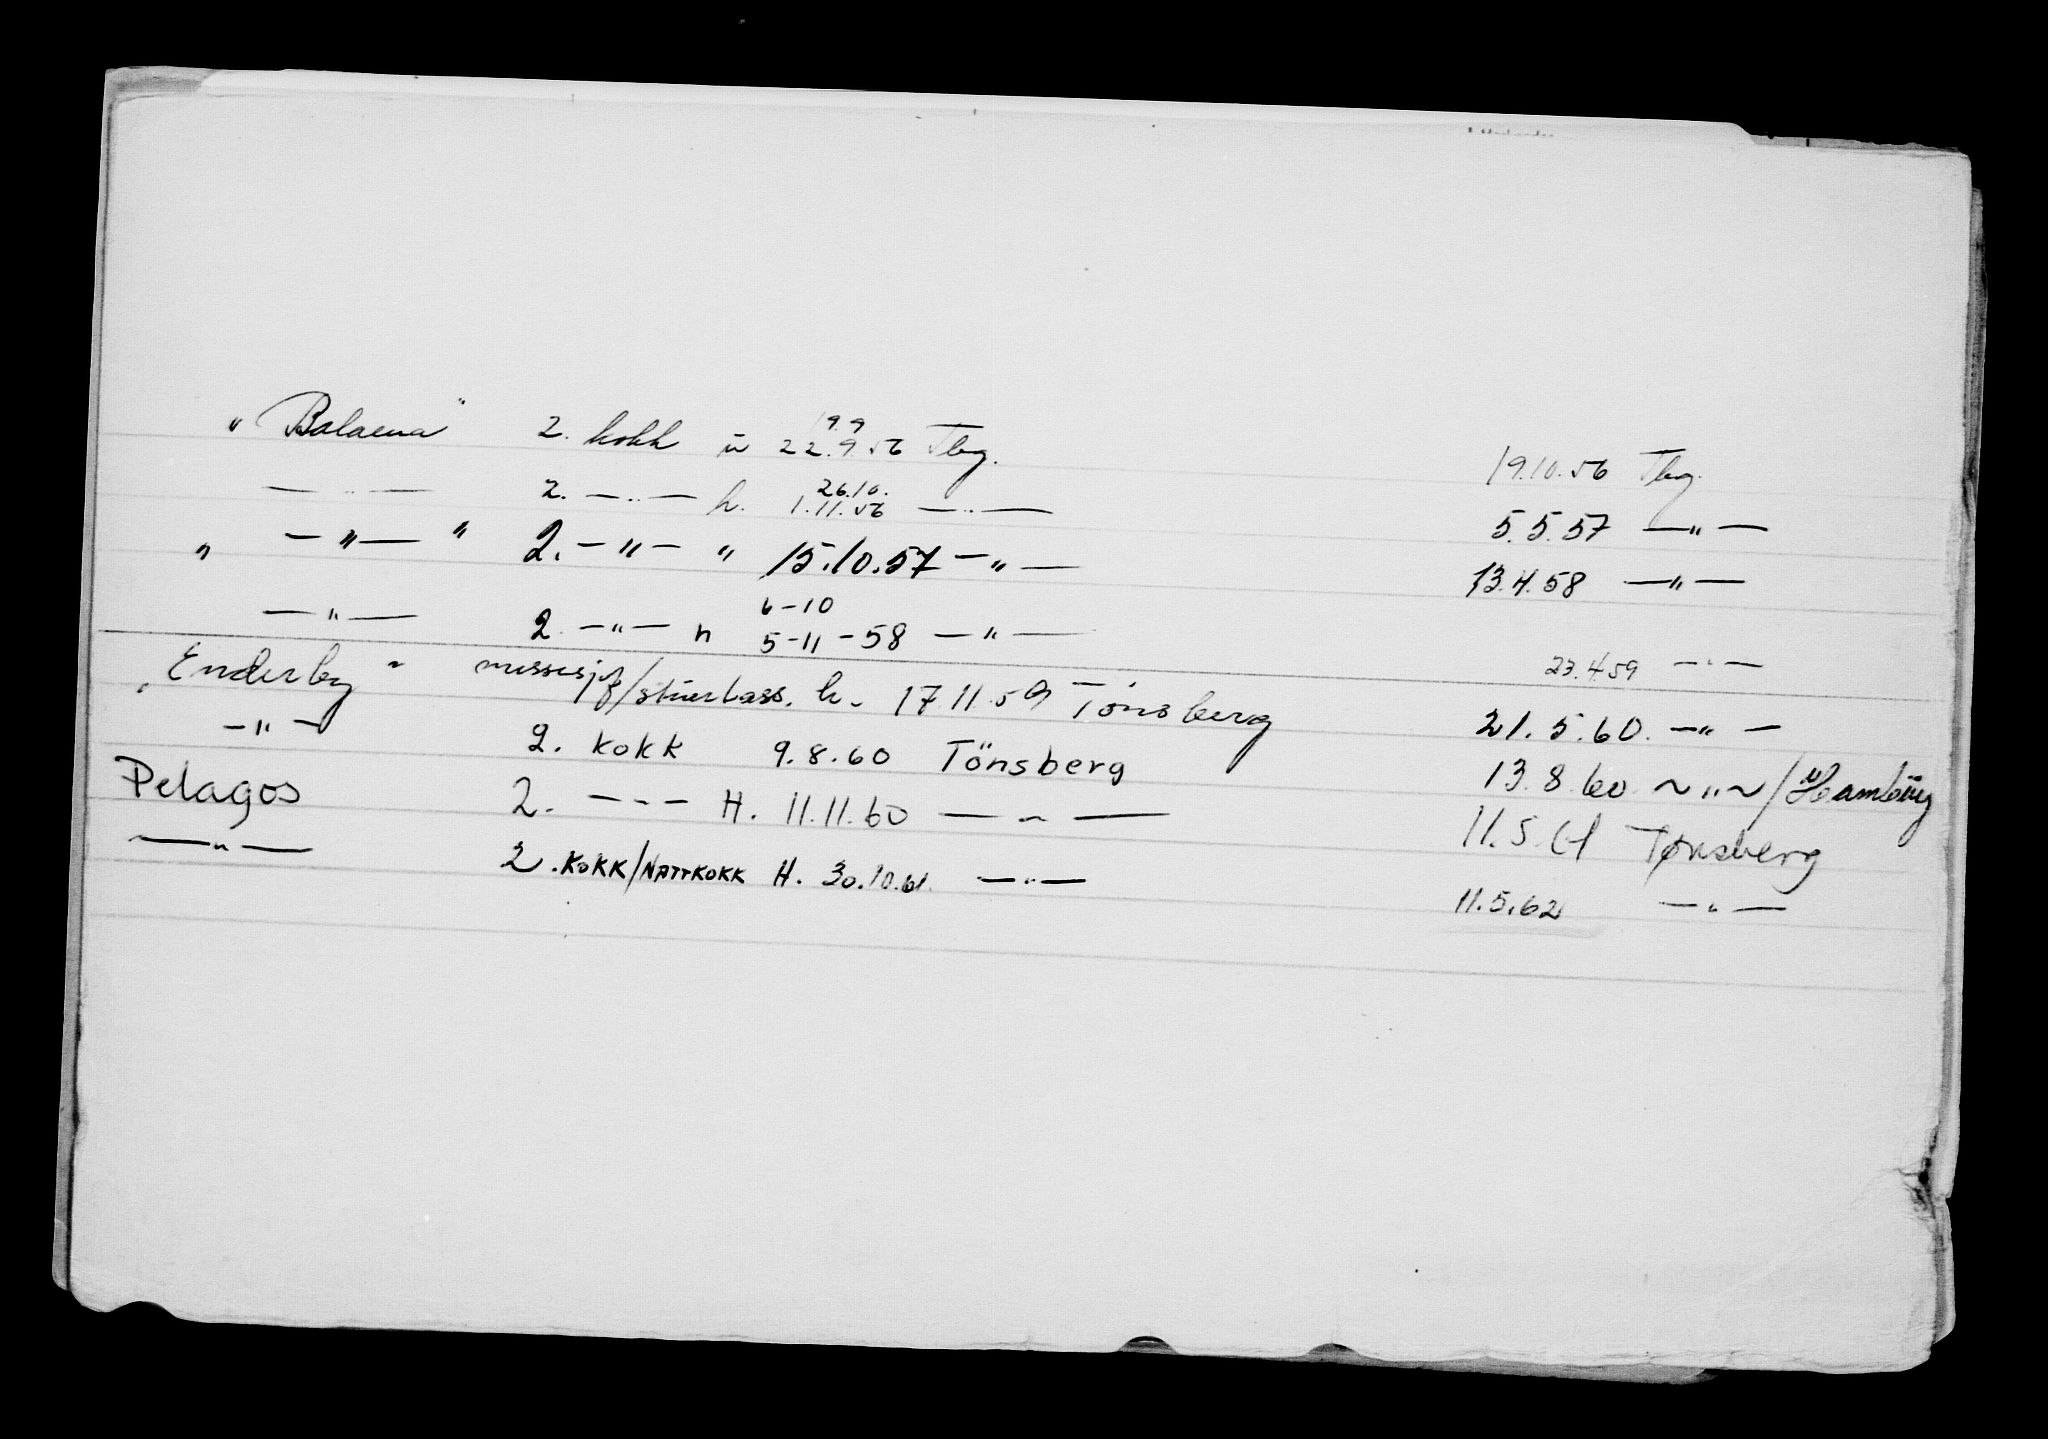 " Balaena " 2. kokk u 19.9 22.9.56 Tbg. 19.10.56 Tbg.
— " — 2. — " — h. 26.10. 1.11.56 — " — 5.5.57 — " —
" — " — " 2. — " — " 15.10.57 — " — 13.4.58 — " —
— " — 2. — " — h 6-10 5-11-58 — " — 23.4.59 — " —
"Enderby" messesjef/stuertass. h. 17.11.59 Tønsberg 21.5.60. — " —
— " — 2. kokk 9.8.60 Tönsberg 13.8.60 — " — / Hamburg
Pelagos 2. — " — H. 11.11.60 — " — 11.5.61 Tønsberg
— " — 2. KOKK/NATTKOKK H. 30.10.61. — " — 11.5.62 — " —